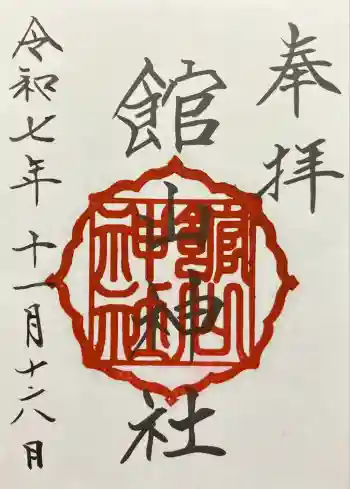 奉拝
館山神社
館山神社
令和七年十一月十六日